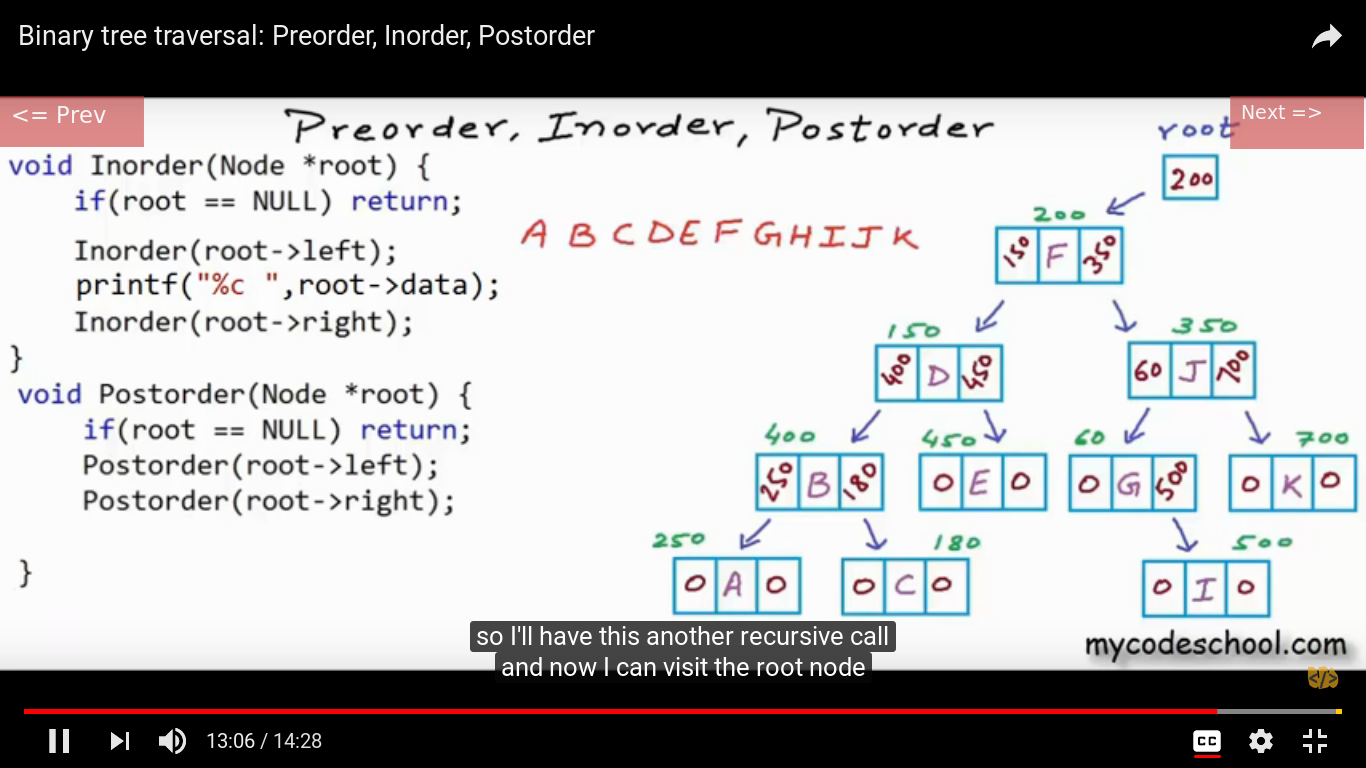 Binary tree traversal: Preorder, Inorder, Postorder
<= Prev
Next =>
Preorder, Inorder, Postorder
root
200
void Inorder(Node *root) {
if(root == NULL) return;
Inorder(root->left);
printf("%c ",root->data);
Inorder(root->right);
}
A B C D E F G H I J K
void Postorder(Node *root) {
if(root == NULL) return;
Postorder(root->left);
Postorder(root->right);
}
200
150 F 350
150
400 D 450
350
60 J 700
400
250 B 180
450
0 E 0
60
0 G 500
700
0 K 0
250
0 A 0
180
0 C 0
500
0 I 0
so I'll have this another recursive call
and now I can visit the root node
mycodeschool.com
</>
13:06 / 14:28
CC